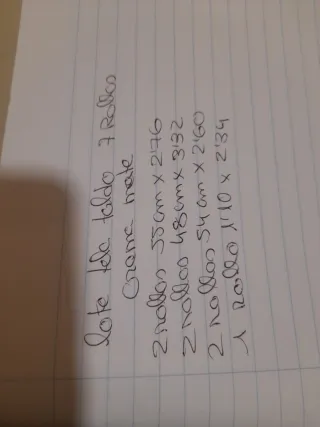 lote tela toldo 7 Rollos
Crema mate
2 rollos 55cm x 2'76
2 rollos 48cm x 3'32
2 rollos 54cm x 2'60
1 Rollo 1'10 x 2'34